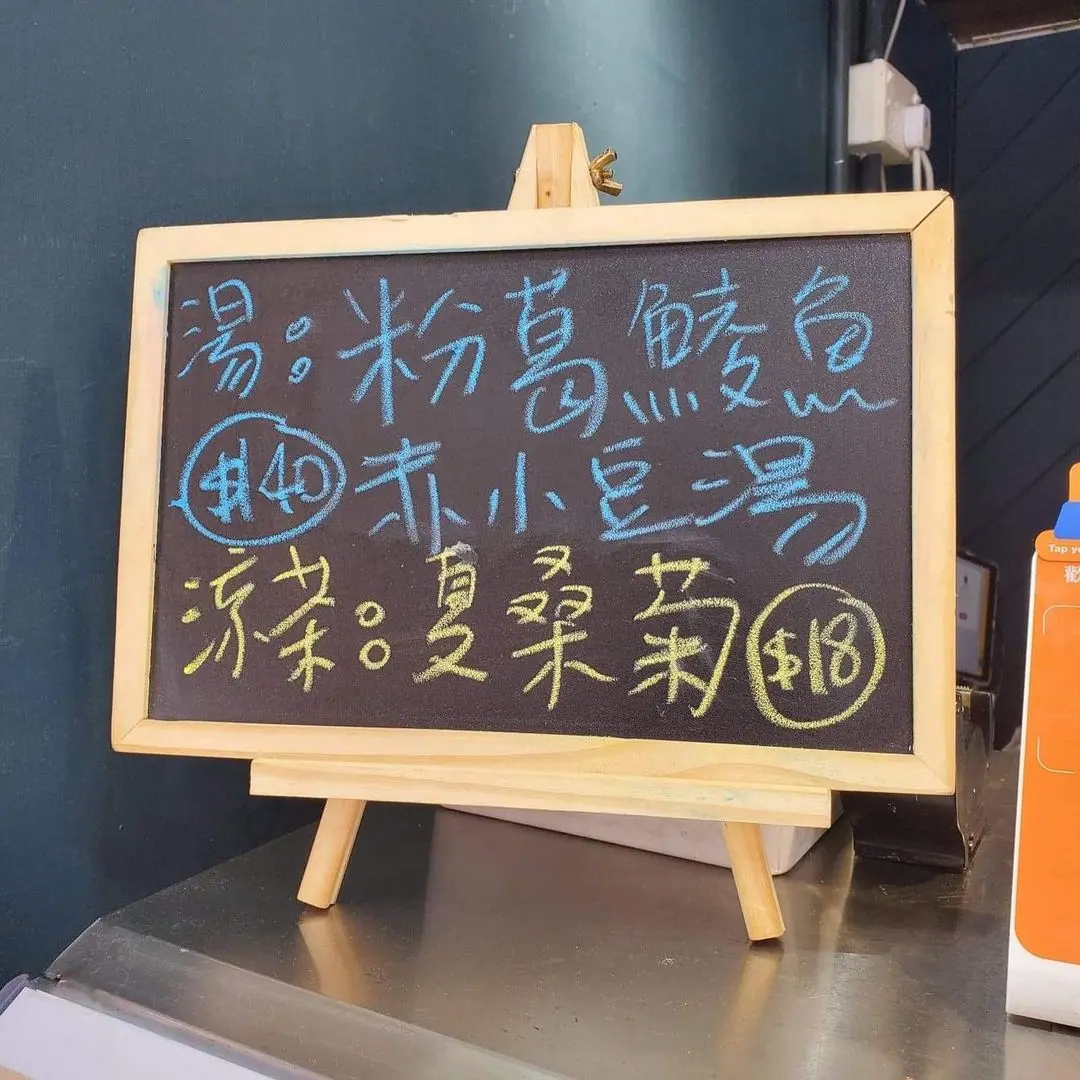 湯：粉葛鯪魚
$40 赤小豆湯
涼茶：夏桑菊 $18
Tap yo
歡